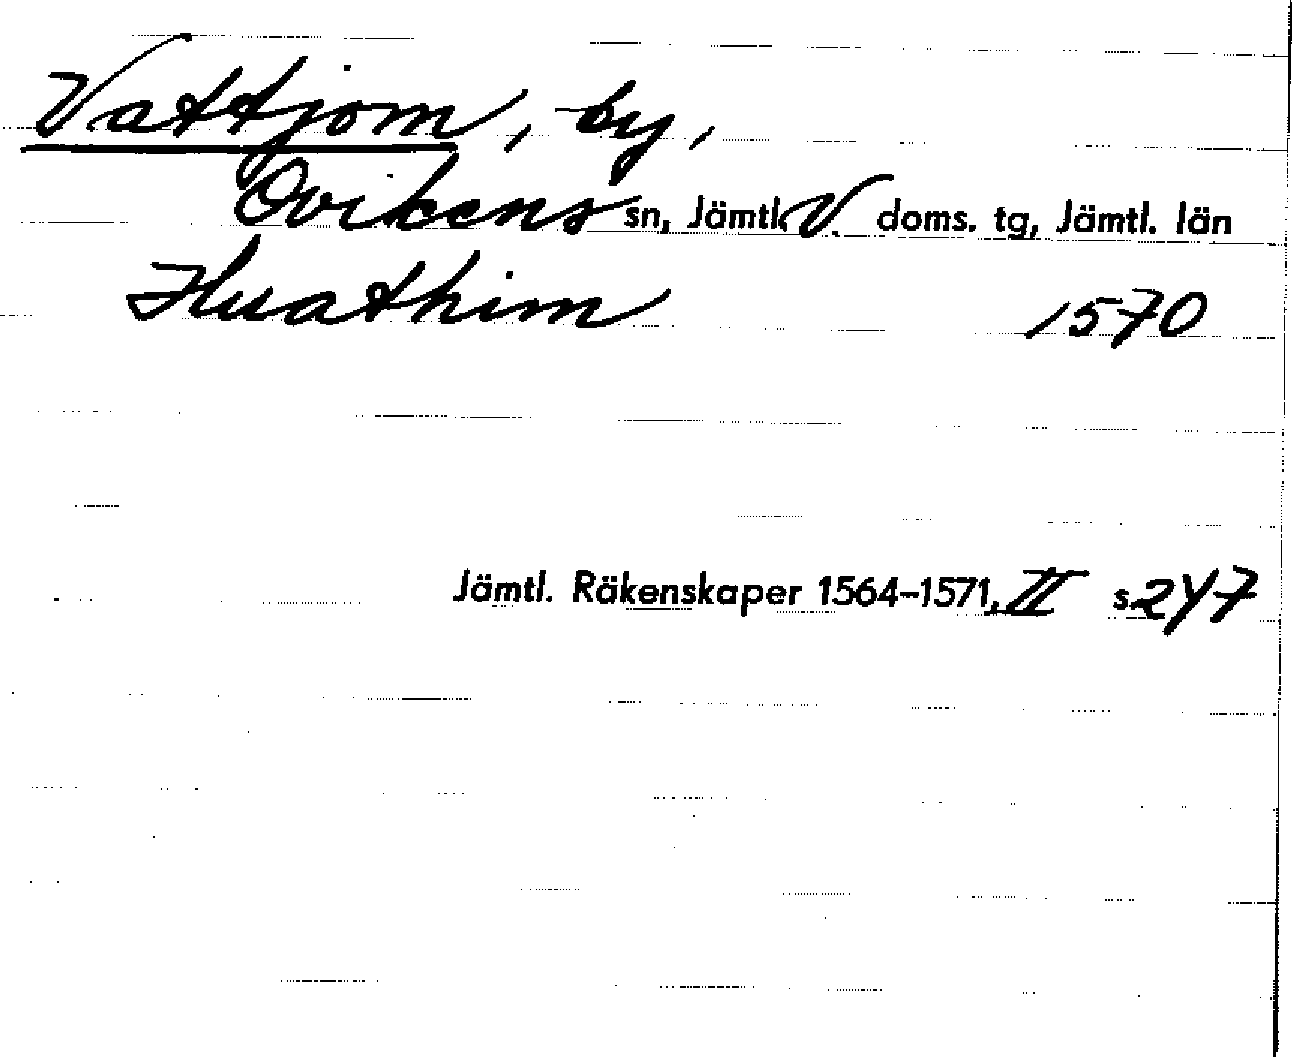 Vattjom, by,
Ovikens sn, Jämtl. V. doms. tg, Jämtl. län
Huathim 1570
Jämtl. Räkenskaper 1564-1571, II s. 247